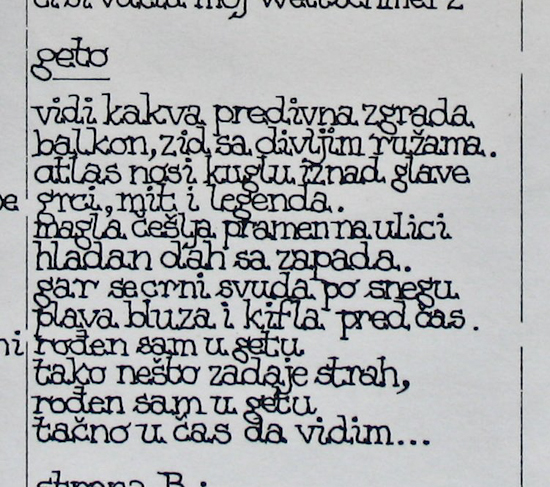 geto
vidi kakva predivna zgrada
balkon, zid sa divljim ružama.
atlas nosi kuglu iznad glave
grci, mit i legenda.
magla češlja pramen na ulici
hladan dah sa zapada.
gar se crni svuda po snegu
plava bluza i kifla pred čas.
rođen sam u getu
tako nešto zadaje strah,
rođen sam u getu
tačno u čas da vidim...
strana B: